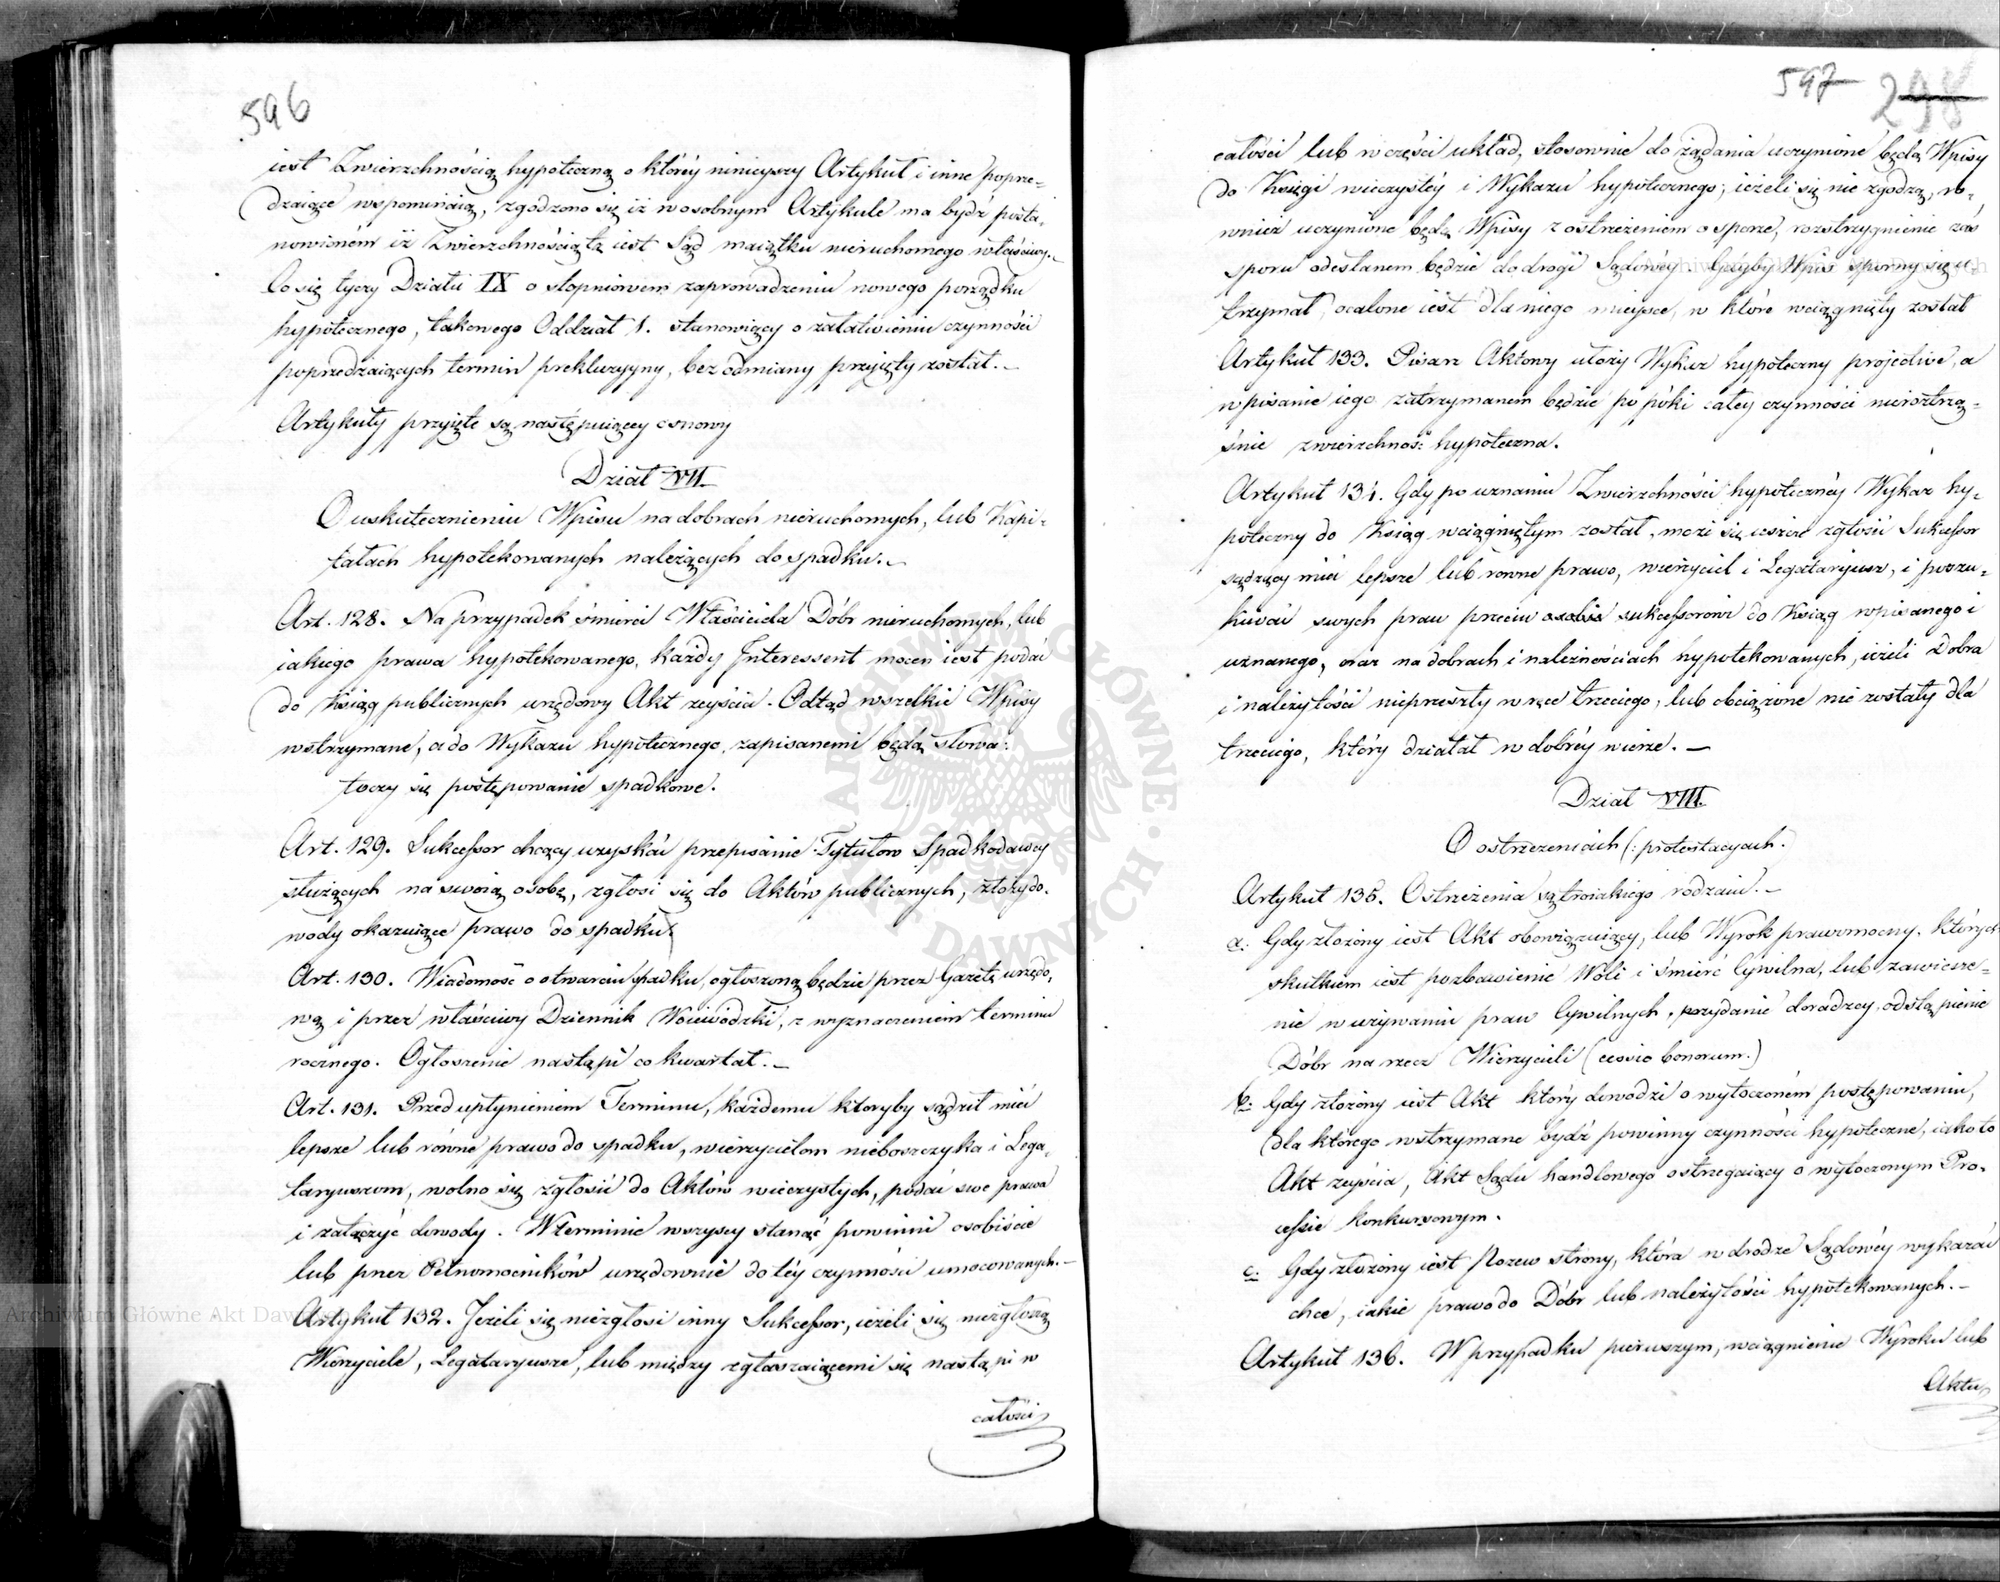 596
iest Zwierzchnością hypoteczną o któréy ninieyszy Artykuł i inne poprze-
dzaiące wspominaią, zgodzono się iż w osobnym Artykule ma bydź posta-
nowioném iż Zwierzchnością tą iest Sąd maiątku nieruchomego właściwy.
Co się tyczy Działu IX o stopniowem zaprowadzeniu nowego porządku
hypotecznego, takowego Oddział 1. stanowiący o załatwieniu czynności
poprzedzaiących termin prekluzyyny, bez odmiany przyięty został.
Artykuły przyięte są następuiącey osnowy
Dział VII.
O uskutecznieniu Wpisu na dobrach nieruchomych, lub Kapi-
tałach hypotekowanych należących do spadku.
Art. 128. Na przypadek śmierci Właściciela Dóbr nieruchomych, lub
iakiego prawa hypotekowanego, każdy Interessent mocen iest podać
do Ksiąg publicznych urzędowy Akt zeyścia. Odtąd wszelkie Wpisy
wstrzymane, a do Wykazu hypotecznego, zapisanemi będą słowa:
toczy się postępowanie spadkowe.
Art. 129. Sukcessor chcący uzyskać przepisanie Tytułów Spadkodawcy
służących na swoią osobę, zgłosi się do Aktów publicznych, złoży do-
wody okazuiące prawo do spadku.
Art. 130. Wiadomość o otwarciu spadku, ogłoszoną będzie przez Gazetę urzędo-
wą i przez właściwy Dziennik Woiewódzki, z wyznaczeniem terminu
rocznego. Ogłoszenie nastąpi co kwartał.
Art. 131. Przed upłynieniem Terminu, każdemu ktoryby sądził mieć
lepsze lub równe prawo do spadku, wierzycielom nieboszczyka i Lega-
taryuszom, wolno się zgłosić do Aktów wieczystych, podać swe prawa
i załączyć dowody. W terminie wszyscy stanąć powinni osobiście
lub przez Pełnomocników urzędownie do téy czynności umocowanych.
Artykuł 132. Jeżeli się niezgłosi inny Sukcessor, ieżeli się niezgłoszą
Wierzyciele, Legataryusze, lub między zgłaszaiącemi się nastąpi w
całości
597 298
całości lub w części układ, stosownie do żądania uczynione będą Wpisy
do Księgi wieczystéy i Wykazu hypotecznego; ieżeli się nie zgodzą, ró-
wnież uczynione będą Wpisy z ostrzeżeniem o sporze, rozstrzygnienie zaś
sporu odesłanem będzie do drogi Sądowéy. Gdyby Wpis sporny się u-
trzymał, ocalone iest dla niego mieysce, w które wciągnięty został
Artykuł 133. Pisarz Aktowy ułoży Wykaz hypoteczny w projekcie, a
wpisanie iego zatrzymanem będzie po póki całey czynności nieroztrzą-
śnie zwierzchność hypoteczna.
Artykuł 134. Gdy po uznaniu Zwierzchności hypotecznéy Wykaz hy-
poteczny do Ksiąg wciągniętym został, może się ieszcze zgłosić Sukcessor
sądzący mieć lepsze lub równe prawo, wierzyciel i Legataryusz, i poszu-
kiwać swych praw przeciw osobie sukcessorowi do Ksiąg wpisanego i
uznanego, oraz na dobrach i należnościach hypotekowanych, ieżeli Dobra
i należytości nieprzeszły w ręce trzeciego, lub obciążone nie zostały dla
trzeciego, który działał w dobréy wierze.
Dział VIII.
O ostrzeżeniach (: protestacyach.
Artykuł 135. Ostrzeżenia są troiakiego rodzaiu.
a. Gdy złożony iest Akt obowiązuiący, lub Wyrok prawomocny, których
skutkiem iest pozbawienie Woli i śmierć Cywilna, lub zawiesze-
nie w używaniu praw Cywilnych, przydanie doradzcy, odstąpienie
Dóbr na rzecz Wierzycieli (cessio bonorum.)
b. Gdy złożony iest Akt który dowodzi o wytoczoném postępowaniu,
dla którego wstrzymane bydź powinny czynności hypoteczne, iako to
Akt zeyścia, Akt Sądu handlowego ostrzegaiący o wytoczonym Pro-
cessie konkursowym.
c. Gdy złożony iest Pozew strony, która w drodze Sądowéy wykazać
chce, iakie prawo do Dóbr lub należytości hypotekowanych.
Artykuł 136. W przypadku pierwszym, wciągnienie Wyroku lub
Aktu
ARCHIWUM GŁÓWNE AKT DAWNYCH
Archiwum Główne Akt Dawnych
Archiwum Główne Akt Dawnych